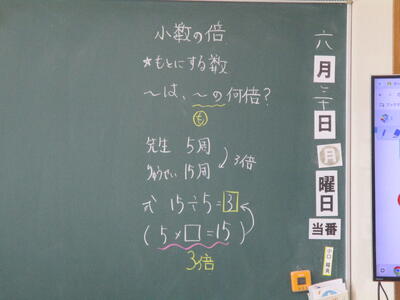 小数の倍
★もとにする数
〜は、〜の何倍？
も
先生 5周
りゅうせい 15周
3倍
式 15÷5=3
( 5×□=15 )
3倍
六
月
二十
日
月
曜
日
当番